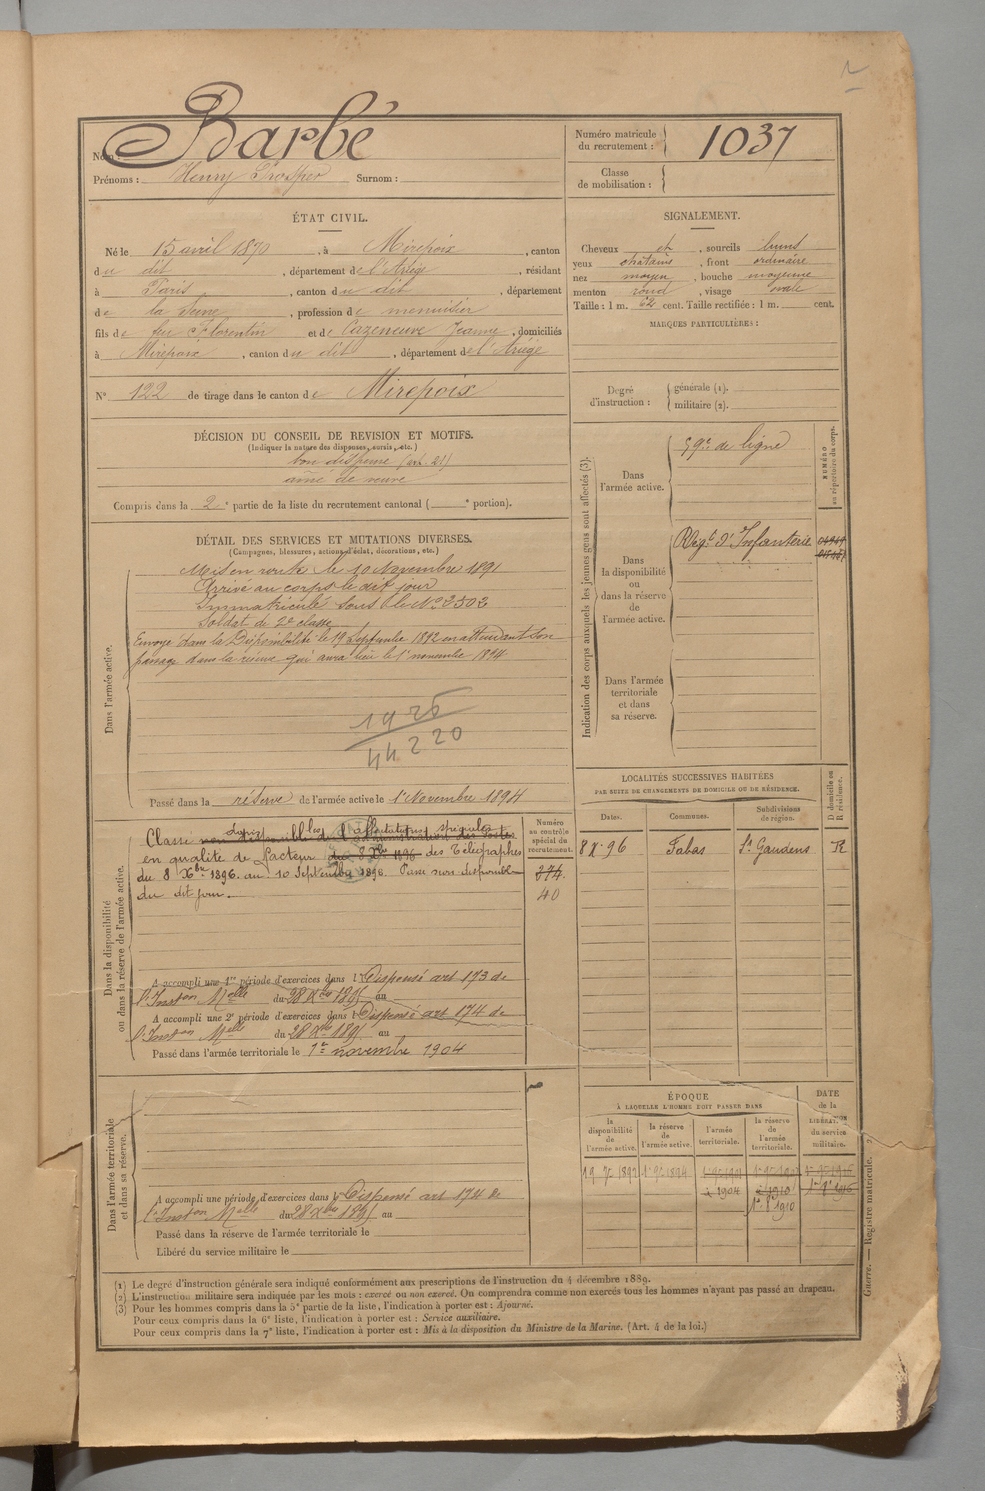 Nom : Barbé
Prénoms : Henry Prosper Surnom :
Numéro matricule du recrutement : 1037
Classe de mobilisation :
ÉTAT CIVIL.
Né le 15 avril 1870, à Mirepoix, canton
du dit, département de l'Ariège, résidant
à Paris, canton du dit, département
de la Seine, profession de menuisier
fils de feu Florentin et de Cazeneuve Jeanne, domiciliés
à Mirepoix, canton du dit, département de l'Ariège
N° 122 de tirage dans le canton de Mirepoix
SIGNALEMENT.
Cheveux et, sourcils bruns
yeux chatains, front ordinaire
nez moyen, bouche moyenne
menton rond, visage ovale
Taille : 1 m. 62 cent. Taille rectifiée : 1 m. cent.
MARQUES PARTICULIÈRES :
Degré d'instruction : générale (1).
militaire (2).
DÉCISION DU CONSEIL DE REVISION ET MOTIFS.
(Indiquer la nature des dispenses, sursis, etc.)
bon dispensé (art. 21)
aîné de veuve
Compris dans la 2e partie de la liste du recrutement cantonal ( e portion).
DÉTAIL DES SERVICES ET MUTATIONS DIVERSES.
(Campagnes, blessures, actions d'éclat, décorations, etc.)
Dans l'armée active.
Mis en route le 10 Novembre 1891
Arrivé au corps le dit jour
Immatriculé sous le No 2502
Soldat de 2e classe
Envoyé dans la Disponibilité le 19 Septembre 1892 en attendant son
passage dans la réserve qui aura lieu le 1er novembre 1894
1926
44220
Passé dans la réserve de l'armée active le 1er Novembre 1894
Indication des corps auxquels les jeunes gens sont affectés (3).
NUMÉRO au répertoire du corps.
Dans l'armée active.
59e de ligne
Dans la disponibilité ou dans la réserve de l'armée active.
Régt d'Infanterie
Dans l'armée territoriale et dans sa réserve.
LOCALITÉS SUCCESSIVES HABITÉES
PAR SUITE DE CHANGEMENTS DE DOMICILE OU DE RÉSIDENCE.
D. domicile ou R. résidence.
Dates. Communes. Subdivisions de région.
8 X 96 Fabas St Gaudens R
Dans la disponibilité ou dans la réserve de l'armée active.
Numéro au contrôle spécial du recrutement.
Classé affectations spéciales
en qualité de facteur des Télégraphes
du 8 Xbre 1896. au 10 Septembre 1898. Passé non disponible
du dit jour.
374
40
A accompli une 1re période d'exercices dans l Dispensé art 173 de
l'Inston Melle du 28 Xbre 1895 au
A accompli une 2e période d'exercices dans l Dispensé art 174 de
l'Inston Melle du 28 Xbre 1895 au
Passé dans l'armée territoriale le 1er novembre 1904
Dans l'armée territoriale et dans sa réserve.
A accompli une période d'exercices dans l Dispensé art 174 de
l'Inston Melle du 28 Xbre 1895 au
Passé dans la réserve de l'armée territoriale le
Libéré du service militaire le
ÉPOQUE
À LAQUELLE L'HOMME DOIT PASSER DANS
DATE de la LIBÉRATION du service militaire.
la disponibilité de l'armée active. la réserve de l'armée active. l'armée territoriale. la réserve de l'armée territoriale.
1904
1910
1910
(1) Le degré d'instruction générale sera indiqué conformément aux prescriptions de l'instruction du 4 décembre 1889.
(2) L'instruction militaire sera indiquée par les mots : exercé ou non exercé. On comprendra comme non exercés tous les hommes n'ayant pas passé au drapeau.
(3) Pour les hommes compris dans la 5e partie de la liste, l'indication à porter est : Ajourné.
Pour ceux compris dans la 6e liste, l'indication à porter est : Service auxiliaire.
Pour ceux compris dans la 7e liste, l'indication à porter est : Mis à la disposition du Ministre de la Marine. (Art. 4 de la loi.)
Guerre. — Registre matricule. 2